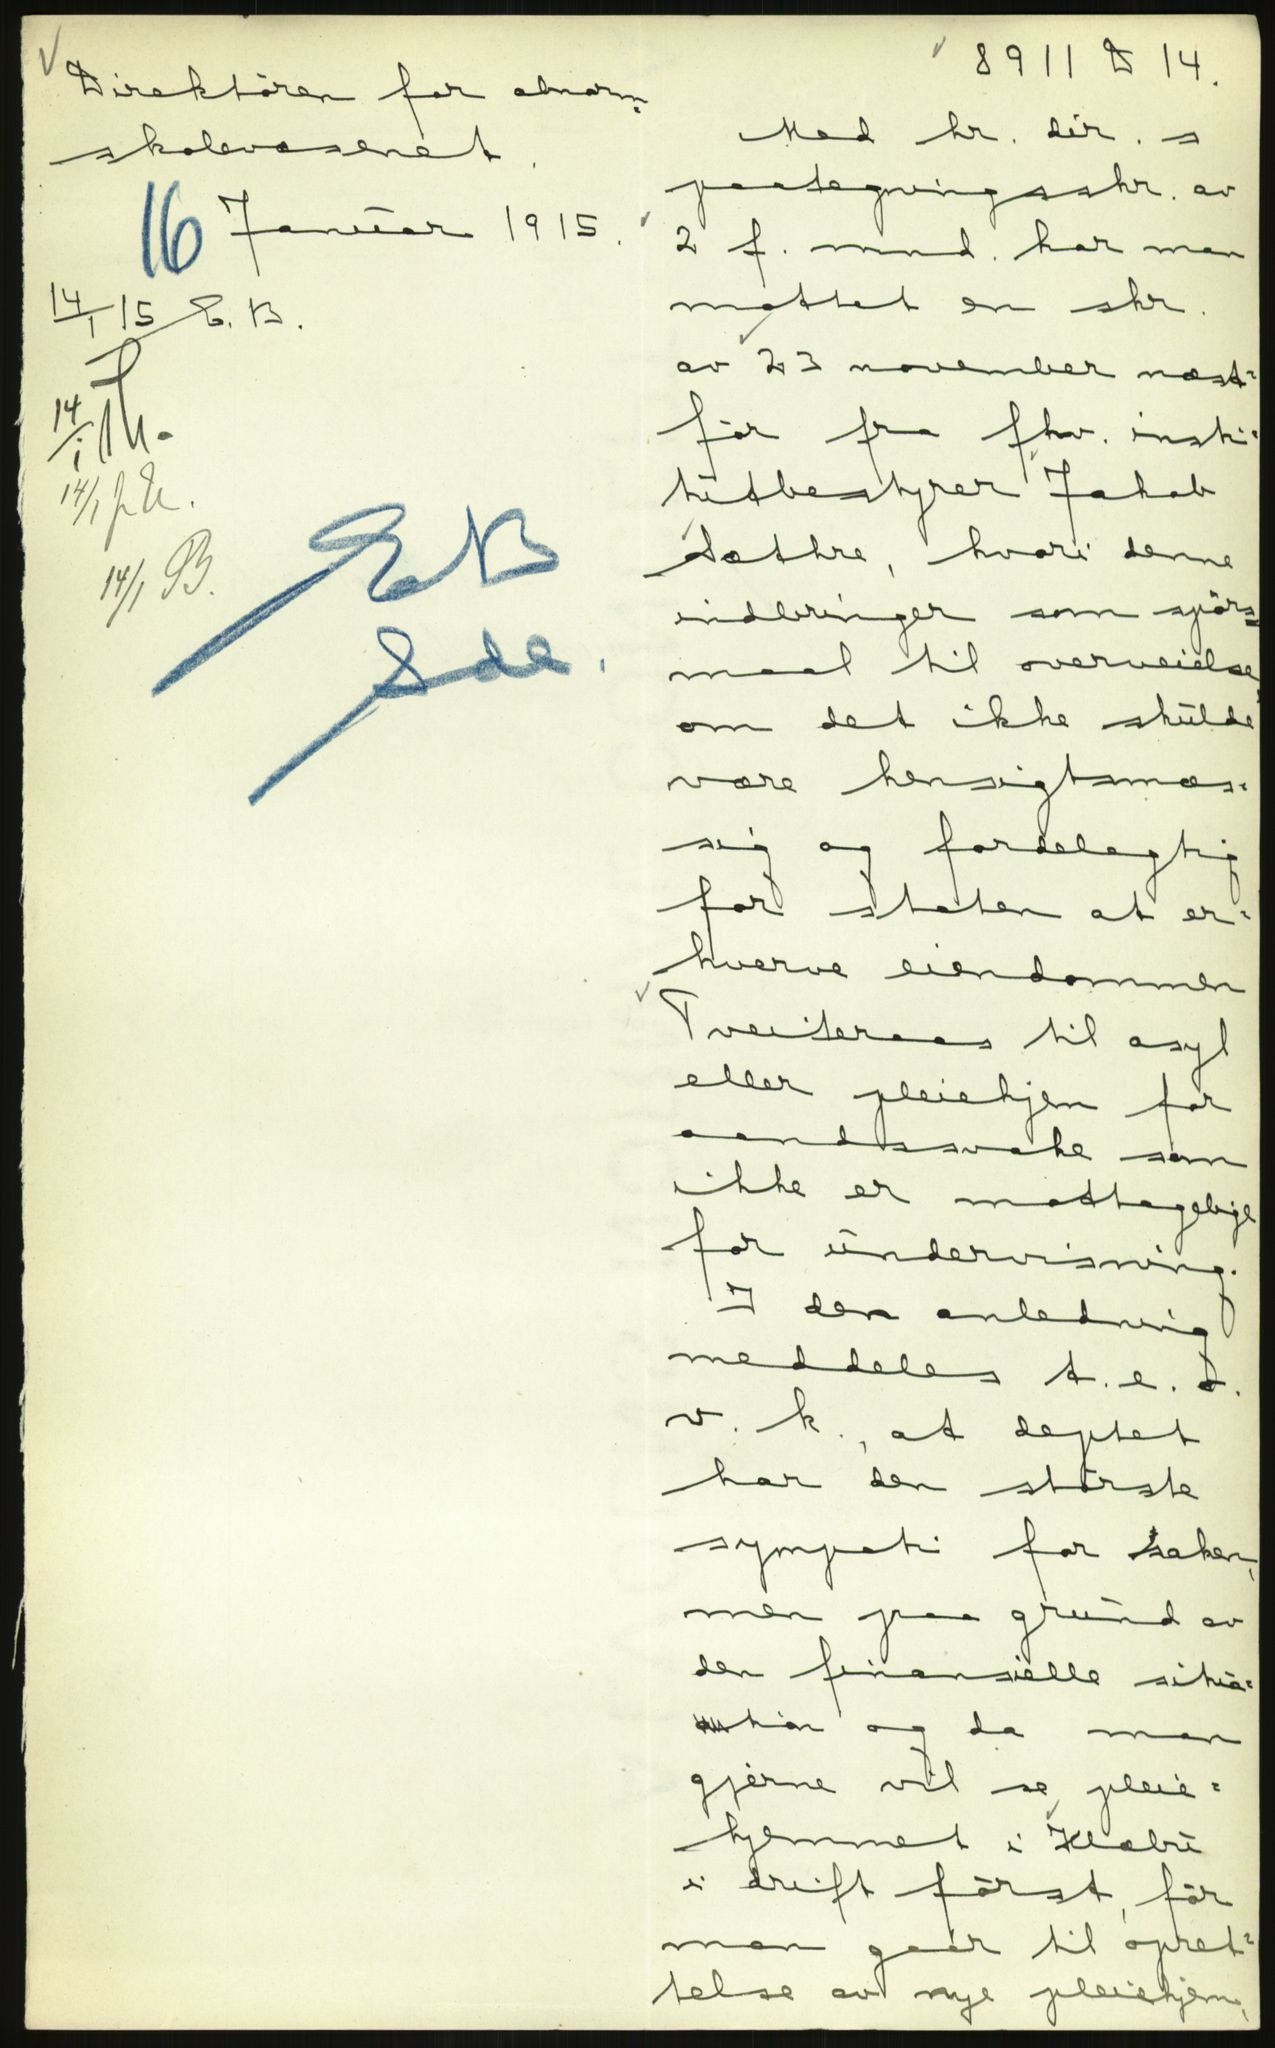 8911 D 14.
Direktören for abnorm=
skolevæsenet.
16 Januar 1915.
14/1 15 E.B.
14/1
14/1
14/1 B.
EB
Ede.
Med hr. dir. s
paategningsskr. av
2 f. mnd. har man
mottat en skr.
av 23 november næst=
för fra fhv. insti=
tutbestyrer Jakob
Sæthre, hvori denne
indbringer som spörs=
maal til overveielse
om det ikke skulde
være hensigtsmæs=
sig og fordelagtig
for staten at er=
hverve eiendommen
Tveiteraas til asyl
eller pleiehjem for
aandssvake som
ikke er mottagelige
for undervisning.
I den anledning
meddeles t. e. o.
v. k., at deptet
har den störste
sympati for saken,
men paa grund av
den finansielle situa=
tion og da man
gjerne vil se pleie=
hjemmet i Klæbu
i drift först, för
man gaar til opret=
telse av nye pleiehjem,